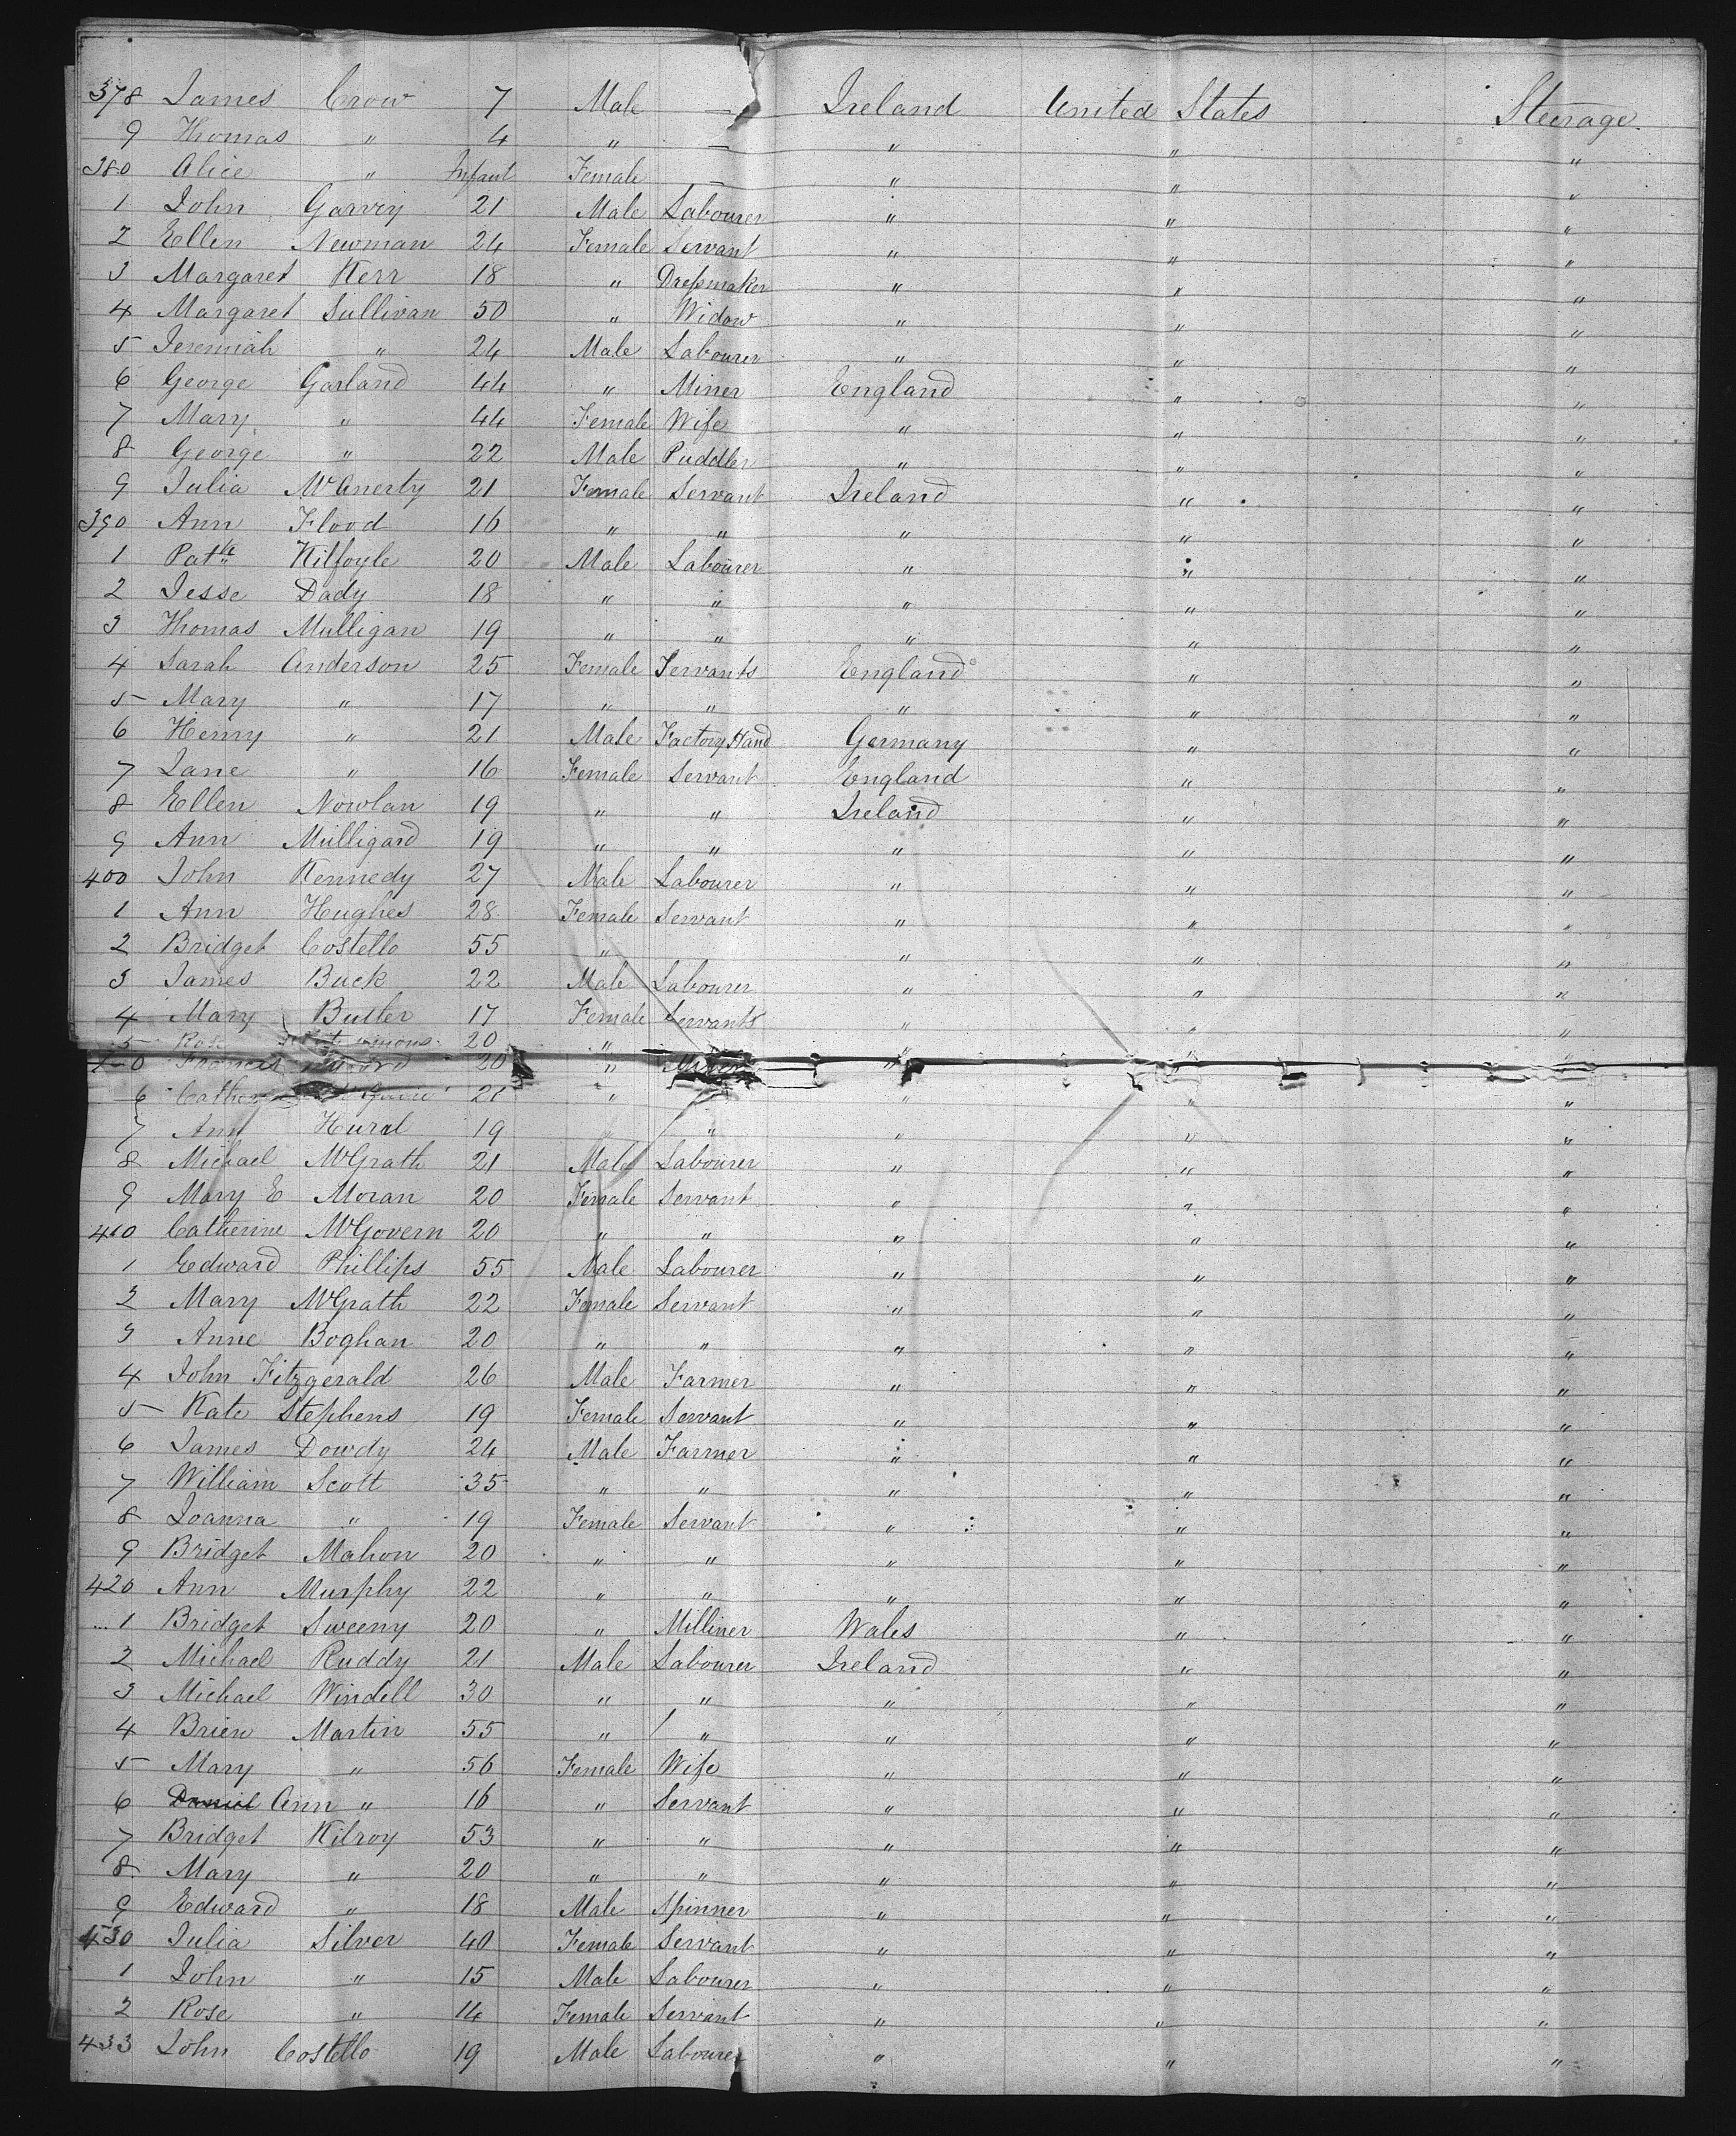 378 James Crow 7 Male — Ireland United States Steerage.
9 Thomas " 4 " — " " "
380 Alice " Infant Female — " " "
1 John Garvey 21 Male Labourer " " "
2 Ellen Newman 24 Female Servant " " "
3 Margaret Kerr 18 " Dressmaker " " "
4 Margaret Sullivan 50 " Widow " " "
5 Jeremiah " 24 Male Labourer " " "
6 George Garland 44 " Miner England " "
7 Mary " 44 Female Wife " " "
8 George " 22 Male Puddler " " "
9 Julia McAnerty 21 Female Servant Ireland " "
390 Ann Flood 16 " " " " "
1 Patk Kilfoyle 20 Male Labourer " " "
2 Jesse Dady 18 " " " " "
3 Thomas Mulligan 19 " " " " "
4 Sarah Anderson 25 Female Servants England " "
5 Mary " 17 " " " " "
6 Henry " 21 Male Factory Hand Germany " "
7 Jane " 16 Female Servant England " "
8 Ellen Nowlan 19 " " Ireland " "
9 Ann Milligard 19 " " " " "
400 John Kennedy 27 Male Labourer " " "
1 Ann Hughes 28 Female Servant " " "
2 Bridget Costello 55 " " " "
3 James Buck 22 Male Labourer " " "
4 Mary Butler 17 Female Servants " " "
5 Rose 20 " " " "
Francis 20 " Miner " "
6 21 " " " "
7 Ann Hural 19 " " " "
8 Michael McGrath 21 Male Labourer " " "
9 Mary E Moran 20 Female Servant " " "
410 Catherine McGovern 20 " " " " "
1 Edward Phillips 55 Male Labourer " " "
2 Mary McGrath 22 Female Servant " " "
3 Anne Boghan 20 " " " " "
4 John Fitzgerald 26 Male Farmer " " "
5 Kate Stephens 19 Female Servant " " "
6 James Dowdy 24 Male Farmer " " "
7 William Scott 35 " " " " "
8 Joanna " 19 Female Servant " " "
9 Bridget Mahon 20 " " " " "
420 Ann Murphy 22 " " " "
1 Bridget Sweeny 20 " Milliner Wales " "
2 Michael Ruddy 21 Male Labourer Ireland " "
3 Michael Windell 30 " " " " "
4 Brien Martin 55 " " " " "
5 Mary " 56 Female Wife " " "
6 Daniel Ann " 16 " Servant " " "
7 Bridget Kilroy 53 " " " " "
8 Mary " 20 " " " " "
9 Edward " 18 Male Spinner " " "
430 Julia Silver 40 Female Servant " " "
1 John " 15 Male Labourer " " "
2 Rose " 14 Female Servant " " "
433 John Costello 19 Male Labourer " " "